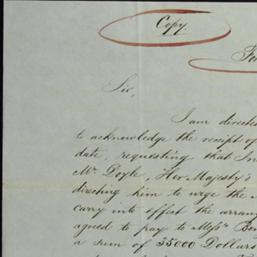 Copy.
Fo
Sir,
I am directe
to acknowledge the receipt of
date, requesting that In
Mr. Doyle, Her Majesty's
directing him to urge the
carry into effect the arran
agreed to pay to Messrs
a sum of 35000 Dollars